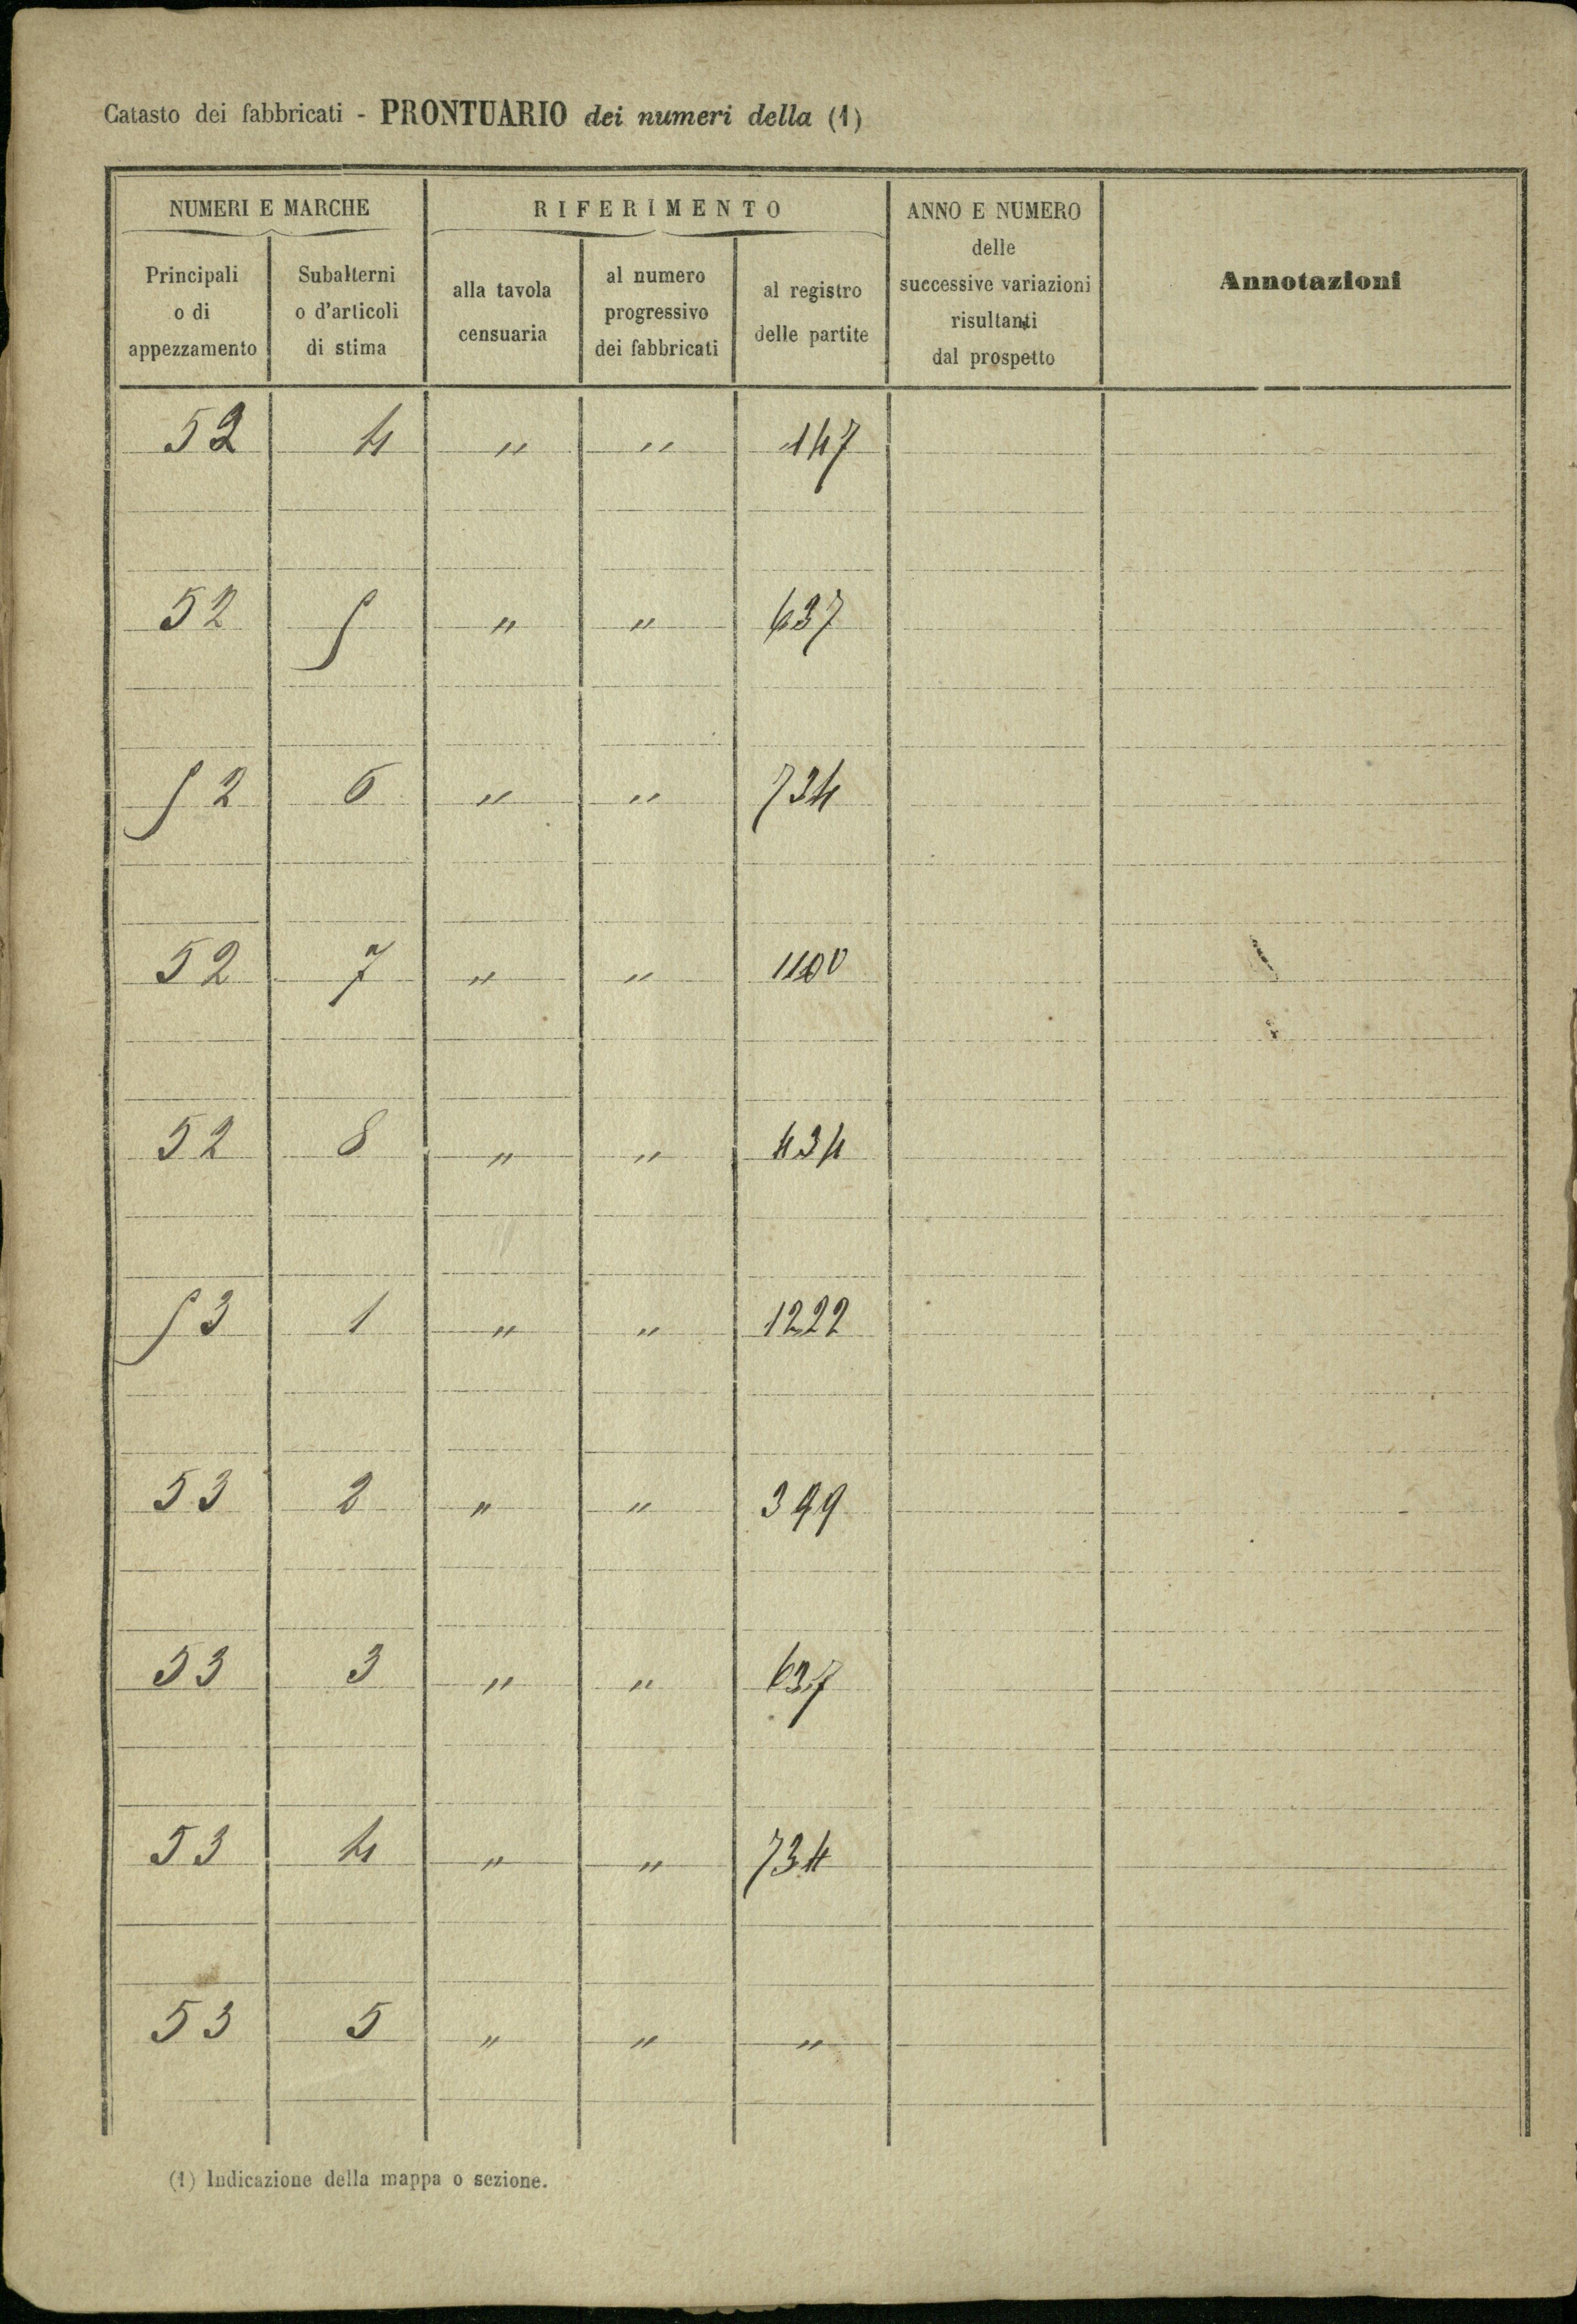 Catasto dei fabbricati - PRONTUARIO dei numeri della (1)
NUMERI E MARCHE
RIFERIMENTO
ANNO E NUMERO
delle
successive variazioni
risultanti
dal prospetto
Annotazioni
Principali
o di
appezzamento
Subalterni
o d'articoli
di stima
alla tavola
censuaria
al numero
progressivo
dei fabbricati
al registro
delle partite
52 4 " " 147
52 5 " " 637
52 6 " " 734
52 7 " " 1100
52 8 " " 434
53 1 " " 1222
53 2 " " 399
53 3 " " 637
53 4 " " 734
53 5 " " "
(1) Indicazione della mappa o sezione.